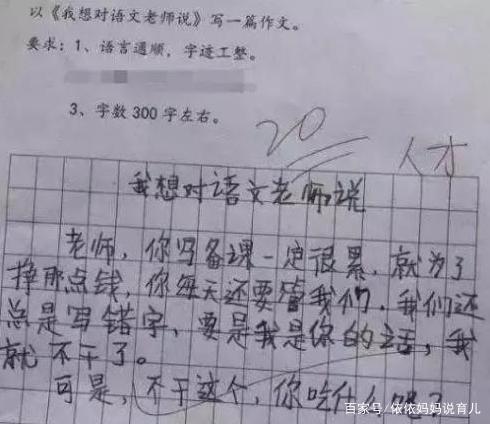 以《我想对语文老师说》写一篇作文。
要求：1、语言通顺，字迹工整。
3、字数300字左右。
20
人才
我想对语文老师说
老师，你写备课一定很累，就为了
挣那点钱，你每天还要管我们，我们还
总是写错字，要是我是你的话，我
就不干了。
可是，不干这个，你吃什么呢？
百家号/依依妈妈说育儿